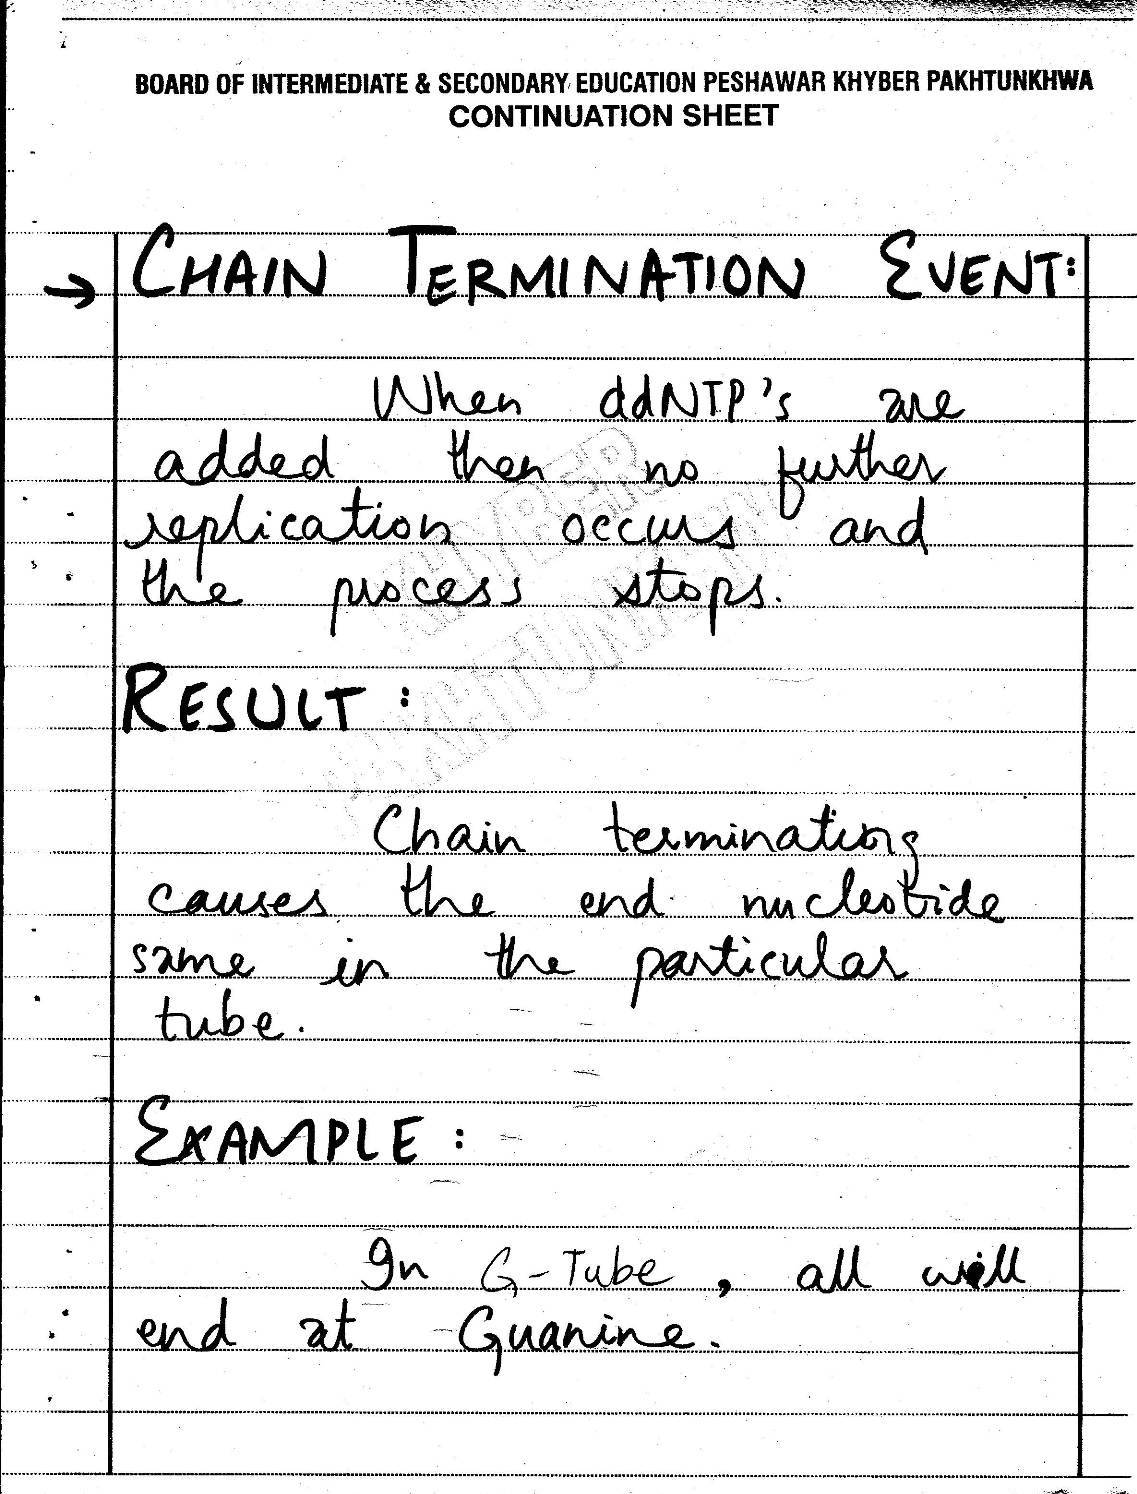 BOARD OF INTERMEDIATE & SECONDARY EDUCATION PESHAWAR KHYBER PAKHTUNKHWA
CONTINUATION SHEET
→ CHAIN TERMINATION EVENT:
When ddNTP's are
added then no further
replication occurs and
the process stops.
KHYBER
PAKHTUNKHWA
RESULT :
Chain terminating
causes the end nucleotide
same in the particular
tube.
EXAMPLE :
In G-Tube, all will
end at Guanine.